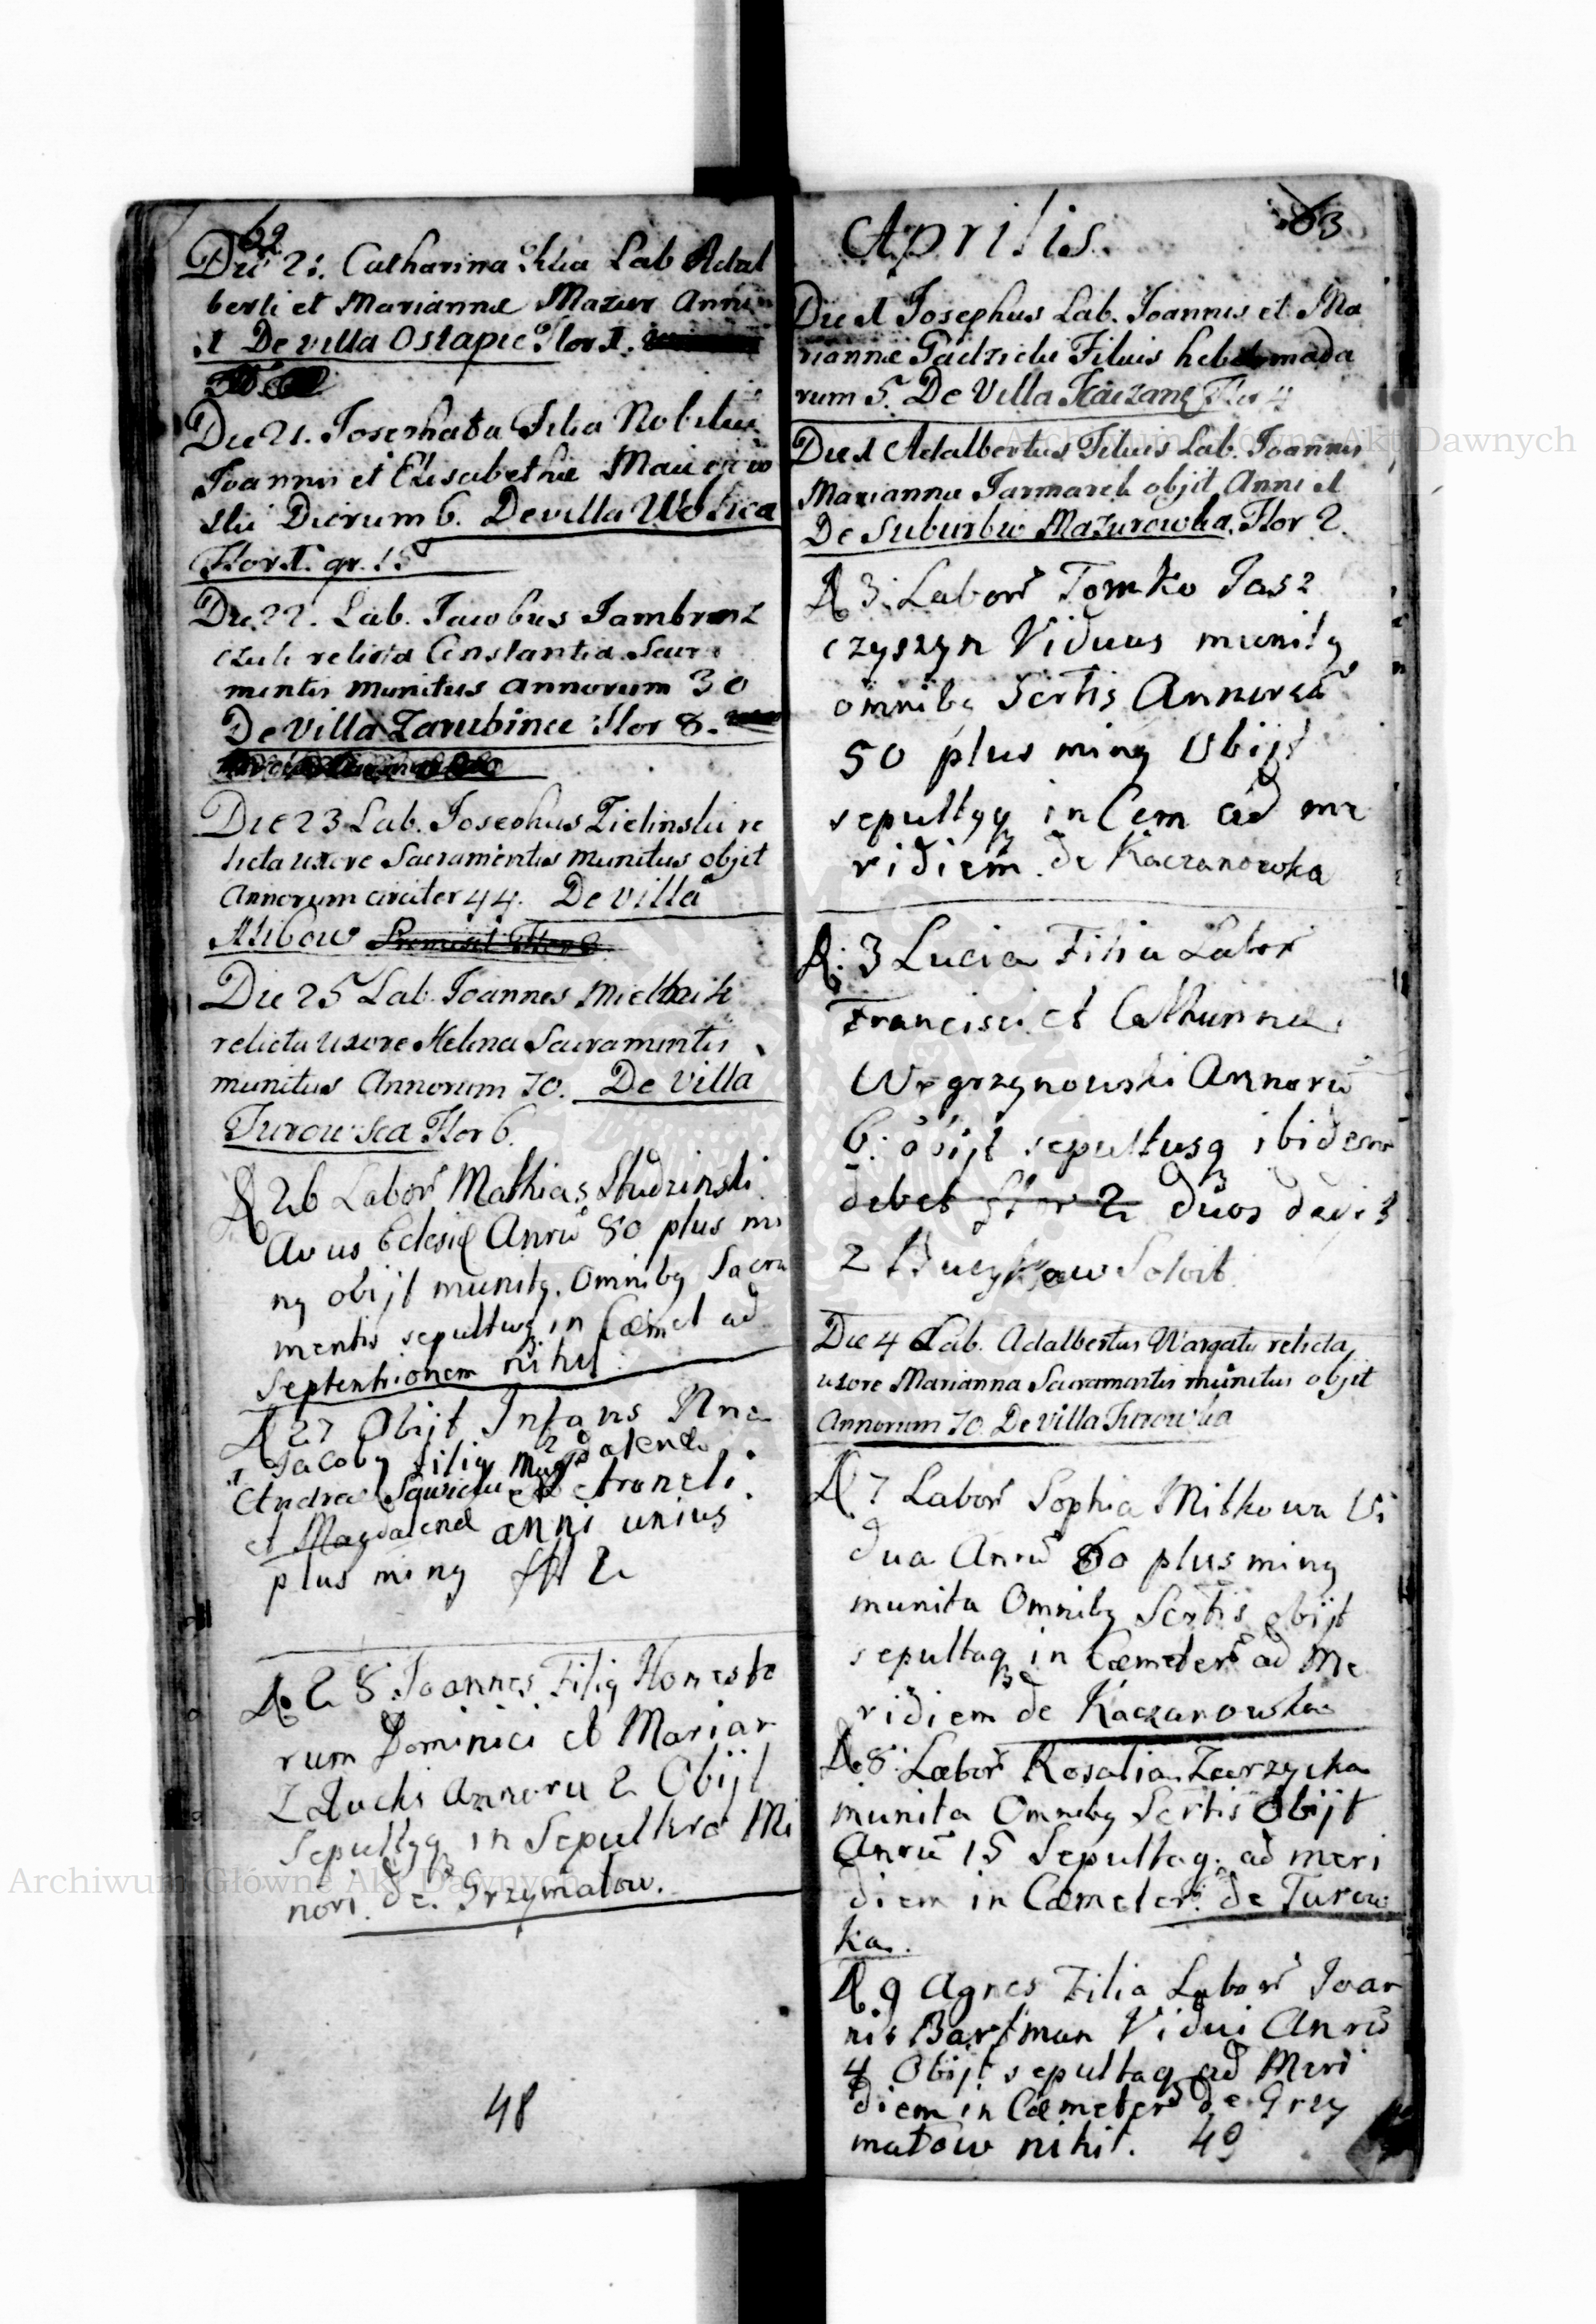 62
Die 21. Catharina Filia Lab Adal
berti et Mariannæ Mazur Anni
1 De villa Ostapie Flor 1.
Die 21. Josephata Filia Nobiliu
Joannis et Elisabethæ
ski Dierum 6. De villa Wolica
Flor 1. gr. 15
Die 22. Lab. Jacobus
relicta Constantia Sacra
mentis munitus annorum 30
De Villa Zarubince Flor 8.
Die 23 Lab. Josephus Zielinski re
licta uxore Sacramentis munitus objit
Annorum circiter 44. De villa
Hlibow
Die 25 Lab. Joannes
relicta uxore Helena Sacramentis
munitus Annorum 70. De Villa
Turowsca Flor 6.
D. 26 Labor Mathias Studzinski
Avus Eclesiæ Anrū 80 plus mi
ng obijt munitg. omnibg Sacra
mentis sepultusq in Cæmet ad
Septentrionem nihil
D 27 Obijt Infans Nne
Jacobg filig Magdalenæ
Andreæ
et Magdalenæ anni unius
plus ming fl 2
D. 28 Joannes Filig Honesto
rum Dominici et Marian
Załucki Annoru 2 Obijt
Sepultgq in Sepulkro Mi
nori de Grzymałow.
48
63
Aprilis
Die 1 Josephus Lab. Joannis et Ma
riannæ Filius hebdomada
rum 5. De Villa Flor 4
Die 1 Adalbertus Filius Lab. Joannis
Marianna Jarmarek objit Anni 1
De Suburbio Mazurowka. Flor 2.
D. 3. Labor Tomko Jasz
czyszyn Viduus munitg
omnibg Scrtis Annorū
50 plus ming Obijt
sepultgq in Cem ad me
ridiem de Kaczanowka
D. 3 Lucia Filia Labor
Francisci et Catharinæ
Węgrzynowski Annorū
6. obijt sepultusq ibidem
debet flor 2 duos
2 Solvit
Die 4 Lab. Adalbertus Wargata relicta
uxore Marianna Sacramentis munitus objit
Annorum 70 De Villa Turowka
D. 7 Labor Sophia Mitkowa Vi
dua Anrū 60 plus ming
munita Omnibg Scrtis obijt
sepultaq in Cæmeter ad Me
ridiem de Kaczanowka
D. 8. Labor Rosalia Zarzycka
munita Omnibg Scrtis Obijt
Anrū 15 Sepultaq ad meri
diem in Cæmeter. de Turow
ka.
D. 9 Agnes Filia Labor Joan
nis Bartman Vidui Anrū
4 Obijt sepultaq ad Meri
diem in Cæmeter de Grzy
małow nihil. 49
Archiwum Główne Akt Dawnych
Archiwum Główne Akt Dawnych